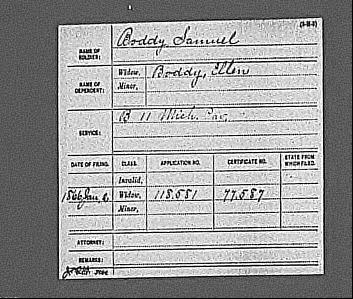 NAME OF SOLDIER: Boddy, Samuel
NAME OF DEPENDENT: Widow, Boddy, Ellen
Minor,
SERVICE: B 11 Mich. Cav.
DATE OF FILING. CLASS. APPLICATION NO. CERTIFICATE NO. STATE FROM WHICH FILED.
Invalid,
1866 Jan. 2. Widow, 118.581 77.587
Minor,
ATTORNEY:
REMARKS: